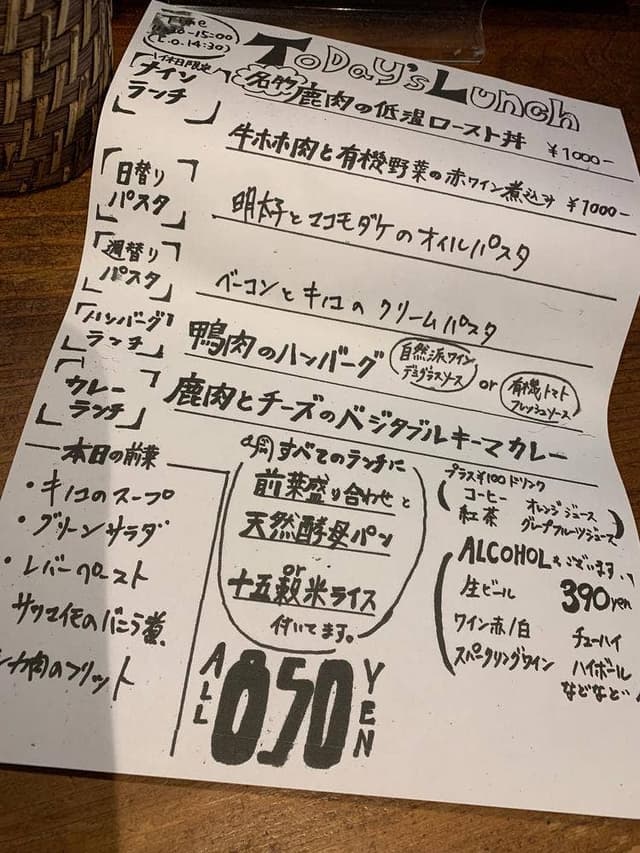 Time
11:30-15:00
(L.O.14:30)
TODAY'S LUNCH
1休日限定
ナイン
ランチ
名物 鹿肉の低温ロースト丼 ¥1000-
牛ホホ肉と有機野菜の赤ワイン煮込み ¥1000-
日替り
パスタ
明太子とマコモダケのオイルパスタ
週替り
パスタ
ベーコンとキノコのクリームパスタ
ハンバーグ
ランチ
鴨肉のハンバーグ
自然派ワイン
デミグラスソース
or
有機トマト
フレッシュソース
カレー
ランチ
鹿肉とチーズのベジタブルキーマカレー
本日の前菜
・キノコのスープ
・グリーンサラダ
・レバーペースト
サツマイモのバニラ煮
シカ肉のフリット
すべてのランチに
前菜盛り合わせと
天然酵母パン
or
十五穀米ライス
付いてます。
ALL 850 YEN
プラス¥100ドリンク
コーヒー オレンジジュース
紅茶 グレープフルーツジュース
ALCOHOLもございます
生ビール 390yen
ワイン赤/白 チューハイ
スパークリングワイン ハイボール
などなど